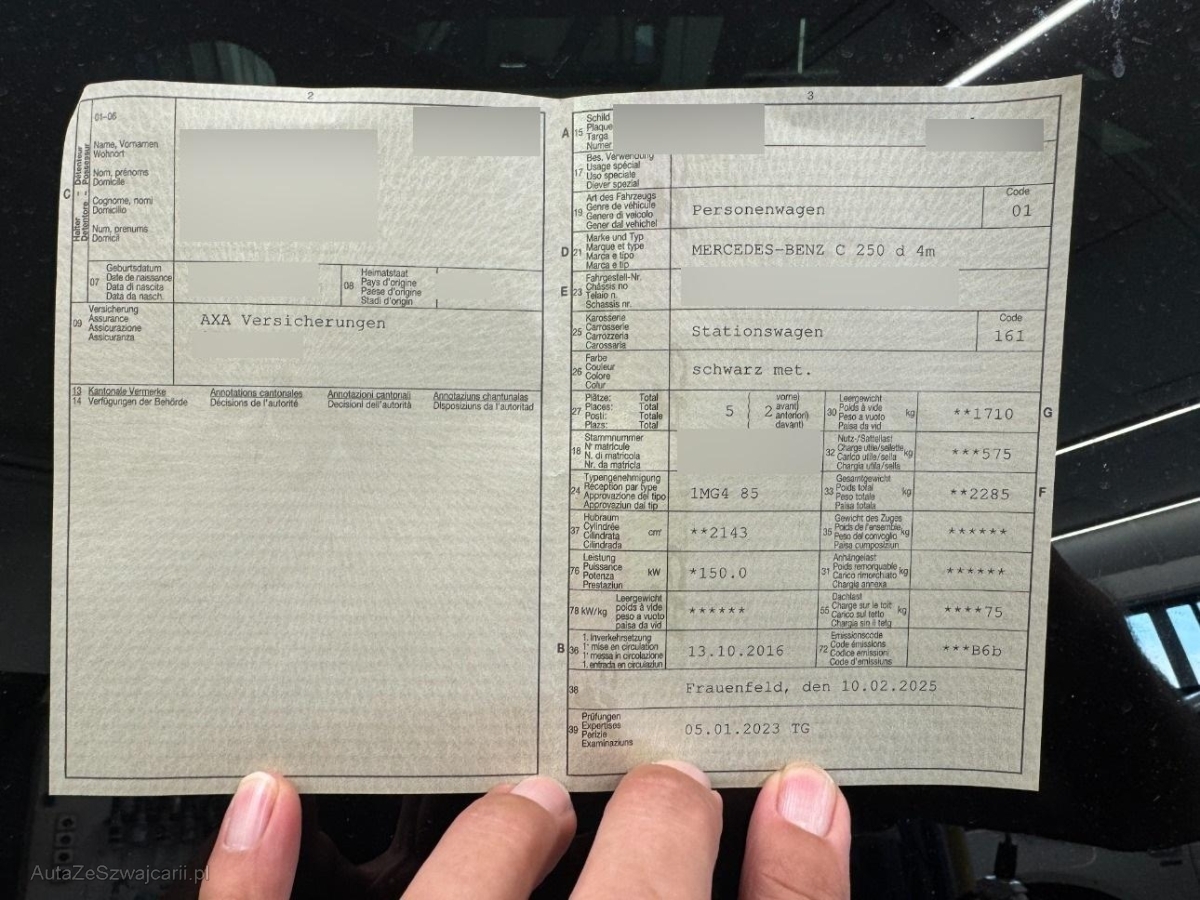 2
01-06
Halter Détenteur
Detentore Possessur
C
Name, Vornamen
Wohnort
Nom, prénoms
Domicile
Cognome, nomi
Domicilio
Num, prenums
Domicil
07
Geburtsdatum
Date de naissance
Data di nascita
Data da nasch.
08
Heimatstaat
Pays d'origine
Paese d'origine
Stadi d'origin
09
Versicherung
Assurance
Assicurazione
Assicuranza
AXA Versicherungen
13 Kantonale Vermerke Annotations cantonales Annotazioni cantonali Annotaziuns chantunalas
14 Verfügungen der Behörde Décisions de l'autorité Decisioni dell'autorità Disposiziuns da l'autoritad
3
A 15
Schild
Plaque
Targa
Numer
17
Bes. Verwendung
Usage spécial
Uso speciale
Diever spezial
19
Art des Fahrzeugs
Genre de véhicule
Genere di veicolo
Gener dal vehichel
Personenwagen
Code
01
D 21
Marke und Typ
Marque et type
Marca e tipo
Marca e tip
MERCEDES-BENZ C 250 d 4m
E 23
Fahrgestell-Nr.
Châssis no
Telaio n.
Schassis nr.
25
Karosserie
Carrosserie
Carrozzeria
Carossaria
Stationswagen
Code
161
26
Farbe
Couleur
Colore
Colur
schwarz met.
27
Plätze: Total
Places: Total
Posti: Totale
Plazs: Total
5
2
vorne)
avant)
anteriori)
davant)
30
Leergewicht
Poids à vide
Peso a vuoto
Paisa da vid
kg
**1710
G
18
Stammnummer
N° matricule
N. di matricola
Nr. da matricla
32
Nutz-/Sattellast
Charge utile/sellette
Carico utile/sella
Chargia utila/sella
kg
***575
24
Typengenehmigung
Réception par type
Approvazione del tipo
Approvaziun dal tip
1MG4 85
33
Gesamtgewicht
Poids total
Peso totale
Paisa totala
kg
**2285
F
37
Hubraum
Cylindrée
Cilindrata
Cilindrada
cm³
**2143
35
Gewicht des Zuges
Poids de l'ensemble
Peso del convoglio
Paisa cumposiziun
kg
******
76
Leistung
Puissance
Potenza
Prestaziun
kW
*150.0
31
Anhängelast
Poids remorquable
Carico rimorchiato
Chargia annexa
kg
******
78 kW/kg
Leergewicht
poids à vide
peso a vuoto
paisa da vid
******
55
Dachlast
Charge sur le toit
Carico sul tetto
Chargia sin il tetg
kg
****75
B 36
1. Inverkehrsetzung
1re mise en circulation
1a messa in circolazione
1. entrada en circulaziun
13.10.2016
72
Emissionscode
Code émissions
Codice emissioni
Code d'emissiuns
***B6b
38
Frauenfeld, den 10.02.2025
39
Prüfungen
Expertises
Perizie
Examinaziuns
05.01.2023 TG
AutaZeSzwajcarii.pl